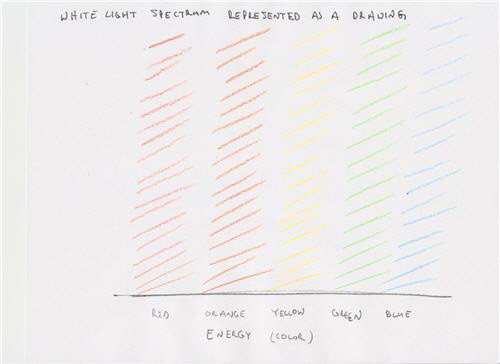 WHITE LIGHT SPECTRUM REPRESENTED AS A DRAWING
RED ORANGE YELLOW GREEN BLUE
ENERGY (COLOR)